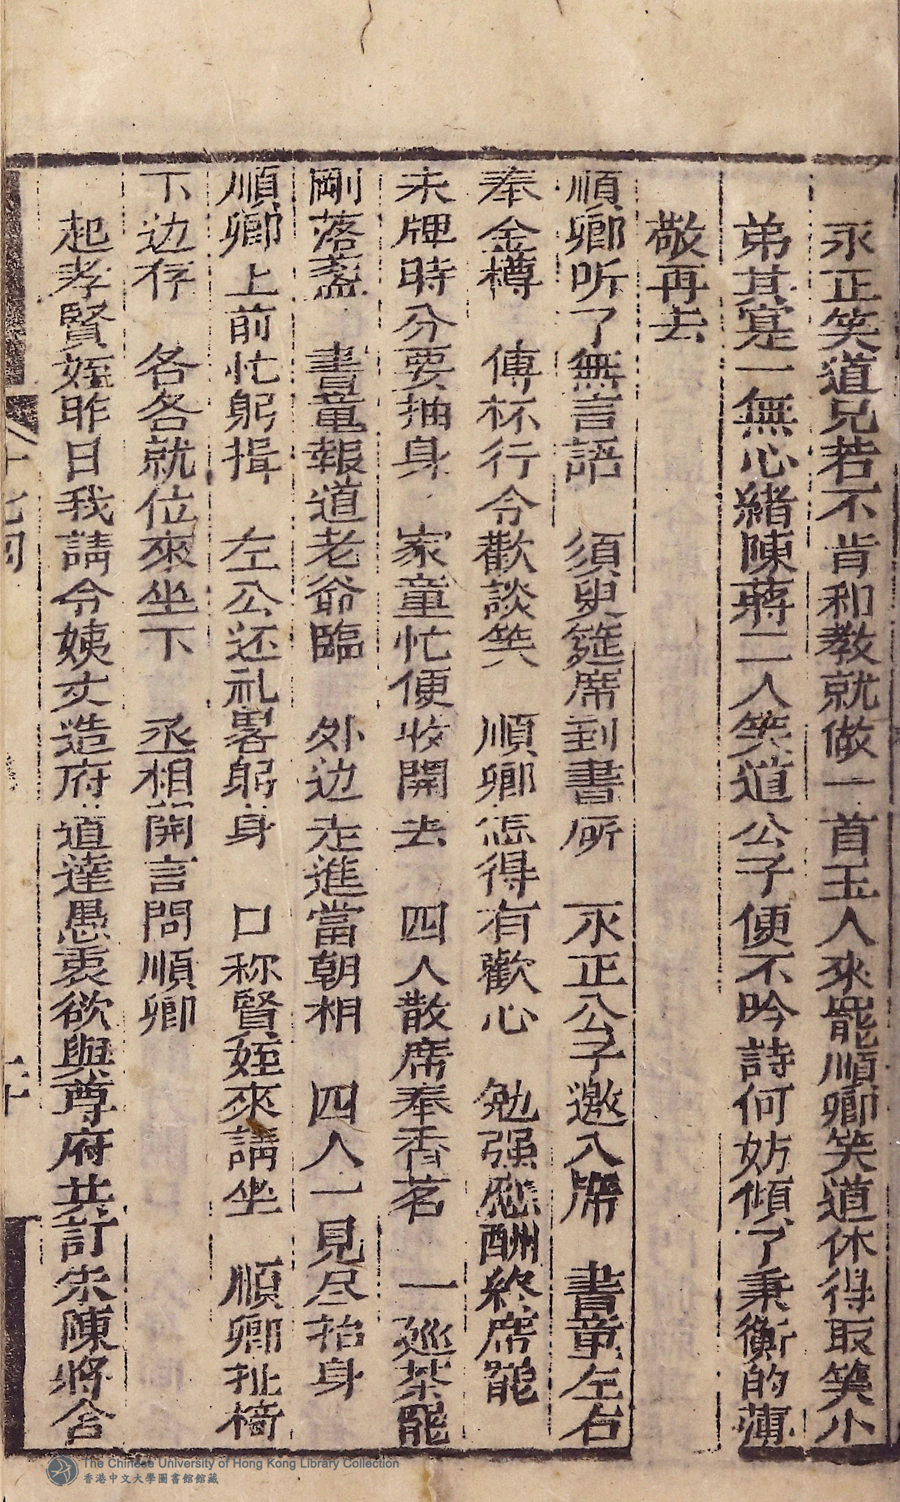 永正笑道兄若不肯和教就做一首玉人來罷順卿笑道休得取笑小
弟其寔一無心緒陳蔣二人笑道公子便不吟詩何妨傾了秉衡的薄
敬再去
順卿听了無言語　須臾筵席到書所　永正公子邀入席　書童左右
奉金樽　傳杯行令歡談笑　順卿怎得有歡心　勉强應酬終席罷
未牌時分要抽身　家童忙便收開去　四人散席奉香茗　一廵茶罷
剛落盞　書童報道老爺臨　外边走進當朝相　四人一見尽抬身
順卿上前忙躬揖　左公还礼畧躬身　口称賢姪來請坐　順卿扯椅
下边存　各各就位來坐下　丞相開言問順卿
起孝賢姪昨日我請令姨丈造府道達愚衷欲與尊府共訂朱陳將合
二十
The Chinese University of Hong Kong Library Collection
香港中文大學圖書館館藏